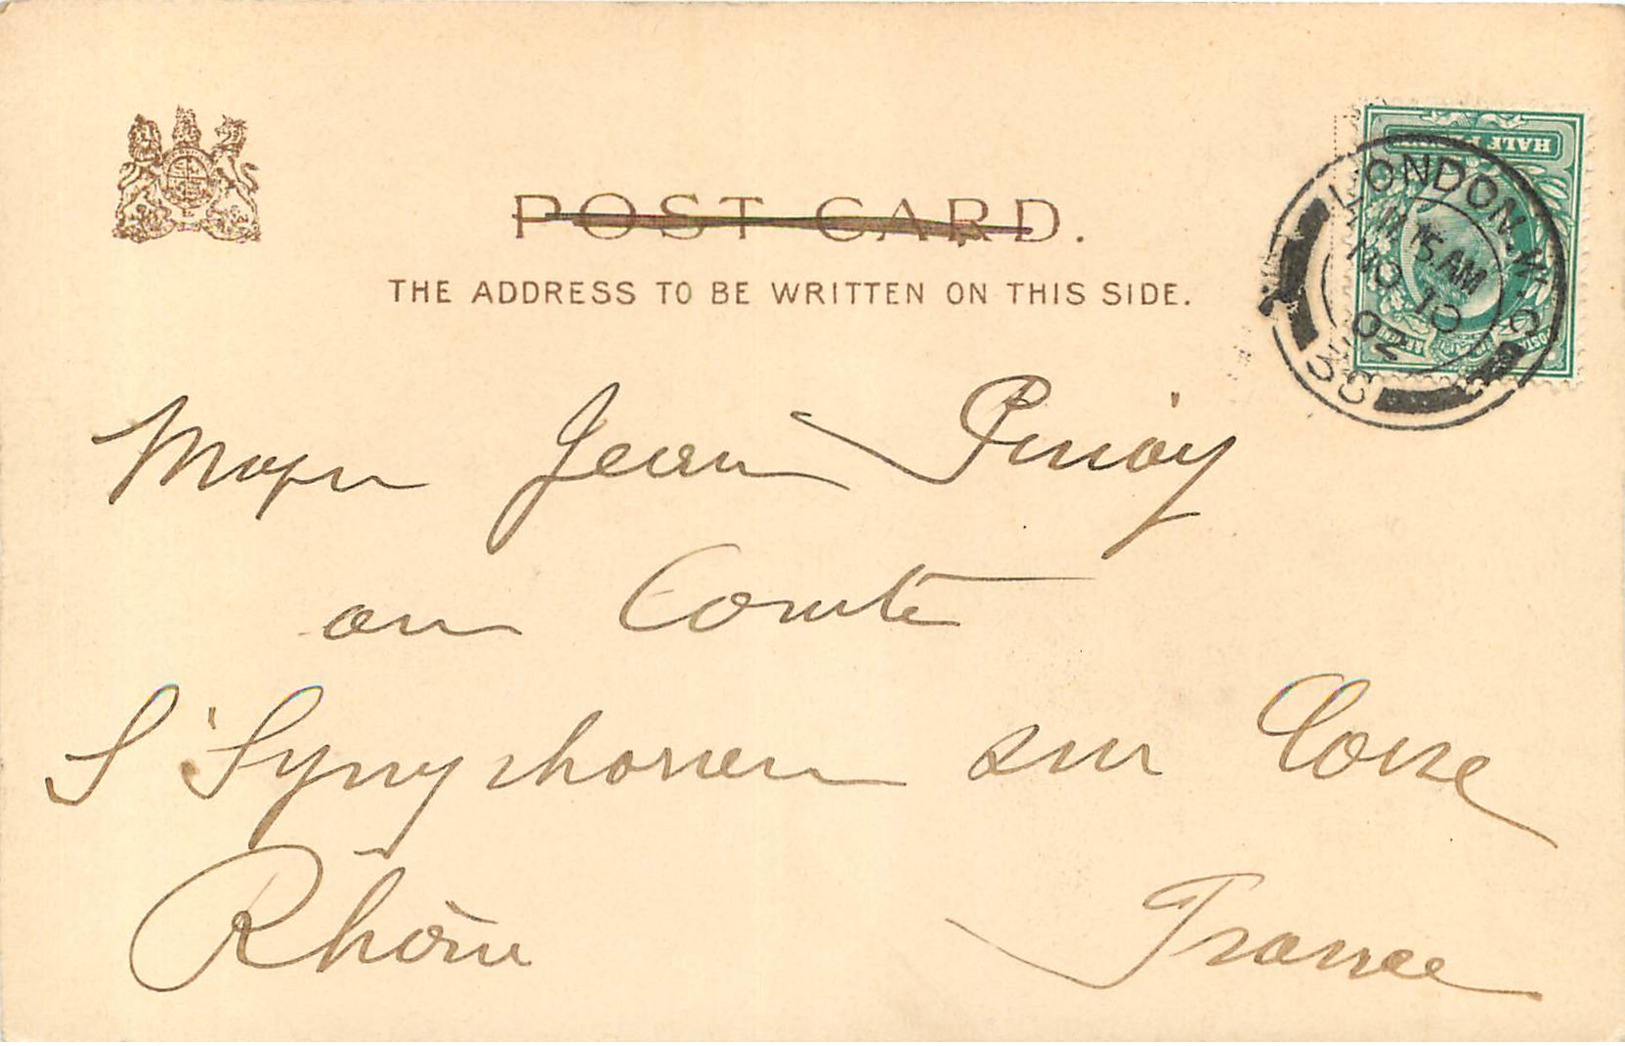 POST CARD.
THE ADDRESS TO BE WRITTEN ON THIS SIDE.
HALF
LONDON. W.C
15 AM
NO 10
02
Jean
au Comte
St Symphorien sur Coise
Rhône France